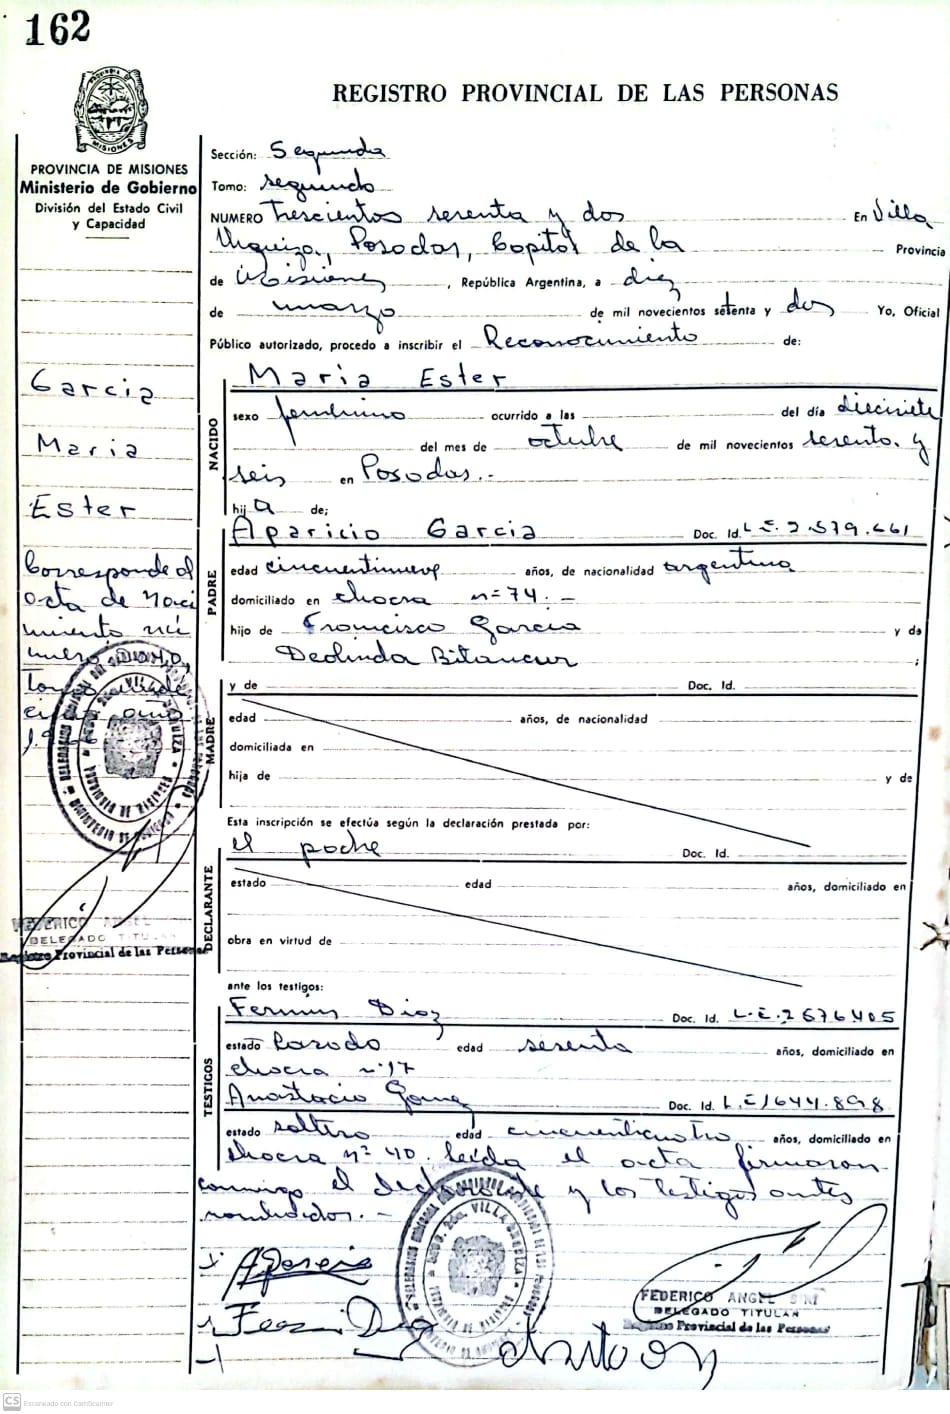 162
REGISTRO PROVINCIAL DE LAS PERSONAS
PROVINCIA DE MISIONES
Ministerio de Gobierno
División del Estado Civil
y Capacidad
Garcia
Maria
Ester
Corresponde al
acta de naci
miento nú
mero
Tomo
año
Sección: Segunda
Tomo: segundo
NUMERO Trescientos sesenta y dos En Villa
Urquiza, Posadas, Capital de la Provincia
de Misiones, República Argentina, a diez
de marzo de mil novecientos setenta y dos Yo, Oficial
Público autorizado, procedo a inscribir el Reconocimiento de:
NACIDO
Maria Ester
sexo femenino ocurrido a las del día diecisiete
del mes de octubre de mil novecientos sesenta y
seis en Posadas.-
hija de;
PADRE
Aparicio Garcia Doc. Id. L.E. 2.579.661
edad cincuentinueve años, de nacionalidad argentina
domiciliado en chacra nº 74. -
hijo de Francisco Garcia y de
Deolinda Bitancur ;
MADRE
y de Doc. Id.
edad años, de nacionalidad
domiciliada en
hija de y de
Esta inscripción se efectúa según la declaración prestada por:
DECLARANTE
el padre Doc. Id.
estado edad años, domiciliado en
obra en virtud de
ante los testigos:
TESTIGOS
Fermin Diaz Doc. Id. L.E. 2676405
estado Casado edad sesenta años, domiciliado en
chacra nº 17
Anastacio Gomez Doc. Id. L.E 1644.898
estado soltero edad cincuenticuatro años, domiciliado en
chacra nº 40. leida el acta firmaron
conmigo el declarante y los testigos antes
nombrados. -
FEDERICO ANGEL
DELEGADO TITULAR
Registro Provincial de las Personas
FEDERICO ANGEL
DELEGADO TITULAR
Registro Provincial de las Personas
CS Escaneado con CamScanner